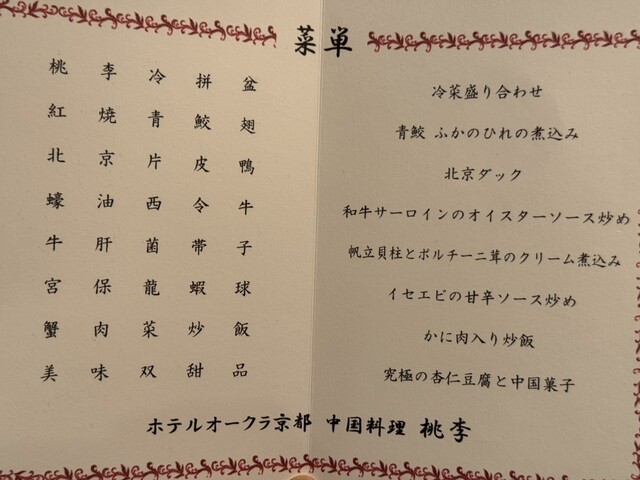 菜単
桃李冷拼盆
紅燒青鮫翅
北京片皮鴨
蠔油西令牛
牛肝菌帶子
宮保龍蝦球
蟹肉菜炒飯
美味双甜品
冷菜盛り合わせ
青鮫 ふかのひれの煮込み
北京ダック
和牛サーロインのオイスターソース炒め
帆立貝柱とポルチーニ茸のクリーム煮込み
イセエビの甘辛ソース炒め
かに肉入り炒飯
究極の杏仁豆腐と中国菓子
ホテルオークラ京都 中国料理 桃李